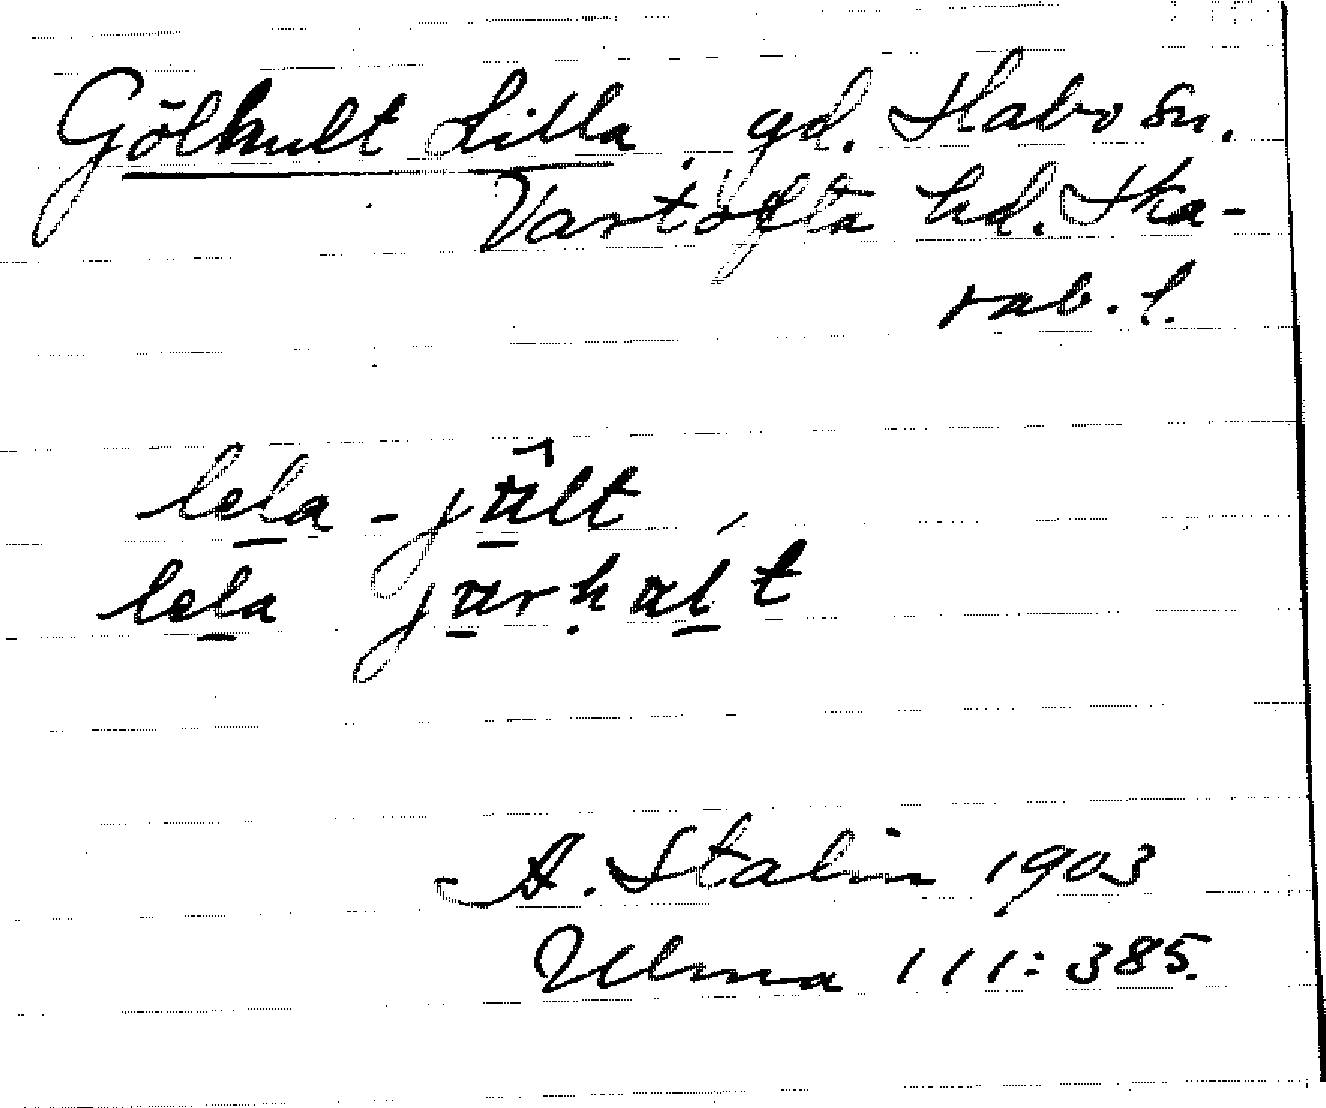 Gölhult Lilla, gd. Habo sn.
Vartofta hd. Ska-
rab. l.
lela - jält,
lela järhalt
A. Stalin 1903
Ulma 111:385.